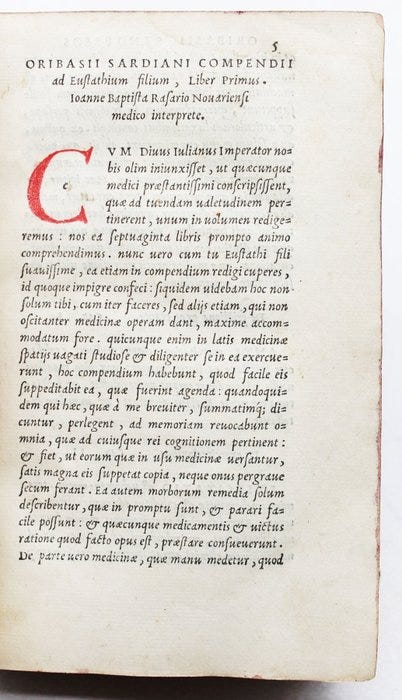 5
ORIBASII SARDIANI COMPENDII
ad Eustathium filium, Liber Primus.
Ioanne Baptista Rasario Nouariensi
medico interprete.
C c. V M Diuus Iulianus Imperator no=
bis olim iniunxisset, ut quæcunque
medici præstantissimi conscripsissent,
quæ ad tuendam ualetudinem per=
tinerent, unum in uolumen redige=
remus: nos ea septuaginta libris prompto animo
comprehendimus. nunc uero cum tu Eustathi fili
suauissime, ea etiam in compendium redigi cuperes,
id quoque impigre confeci: siquidem uidebam hoc non
solum tibi, cum iter faceres, sed alijs etiam, qui non
oscitanter medicinæ operam dant, maxime accom=
modatum fore. quicunque enim in latis medicinæ
spatijs uagati studiose & diligenter se in ea exercue=
runt, hoc compendium habebunt, quod facile eis
suppeditabit ea, quæ fuerint agenda: quandoqui=
dem qui hæc, quæ à me breuiter, summatimq; di=
cuntur, perlegent, ad memoriam reuocabunt o=
mnia, quæ ad cuiusque rei cognitionem pertinent:
& fiet, ut eorum quæ in usu medicinæ uersantur,
satis magna eis suppetat copia, neque onus pergraue
secum ferant. Ea autem morborum remedia solum
describentur, quæ in promptu sunt, & parari fa=
cile possunt: & quæcunque medicamentis & uictus
ratione quod facto opus est, præstare consueuerunt.
De parte uero medicinæ, quæ manu medetur, quod